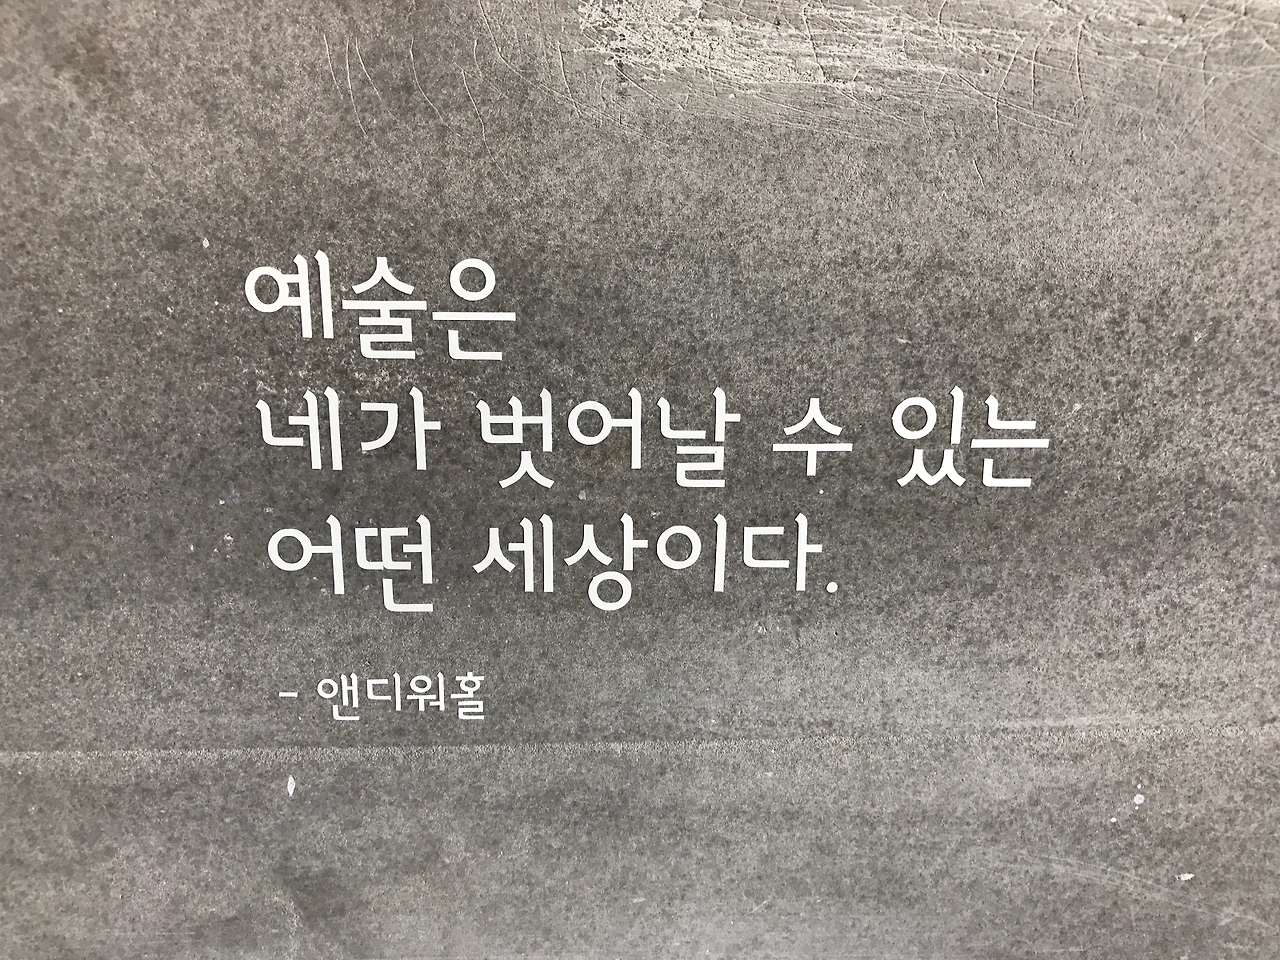 예술은
네가 벗어날 수 있는
어떤 세상이다.
- 앤디워홀